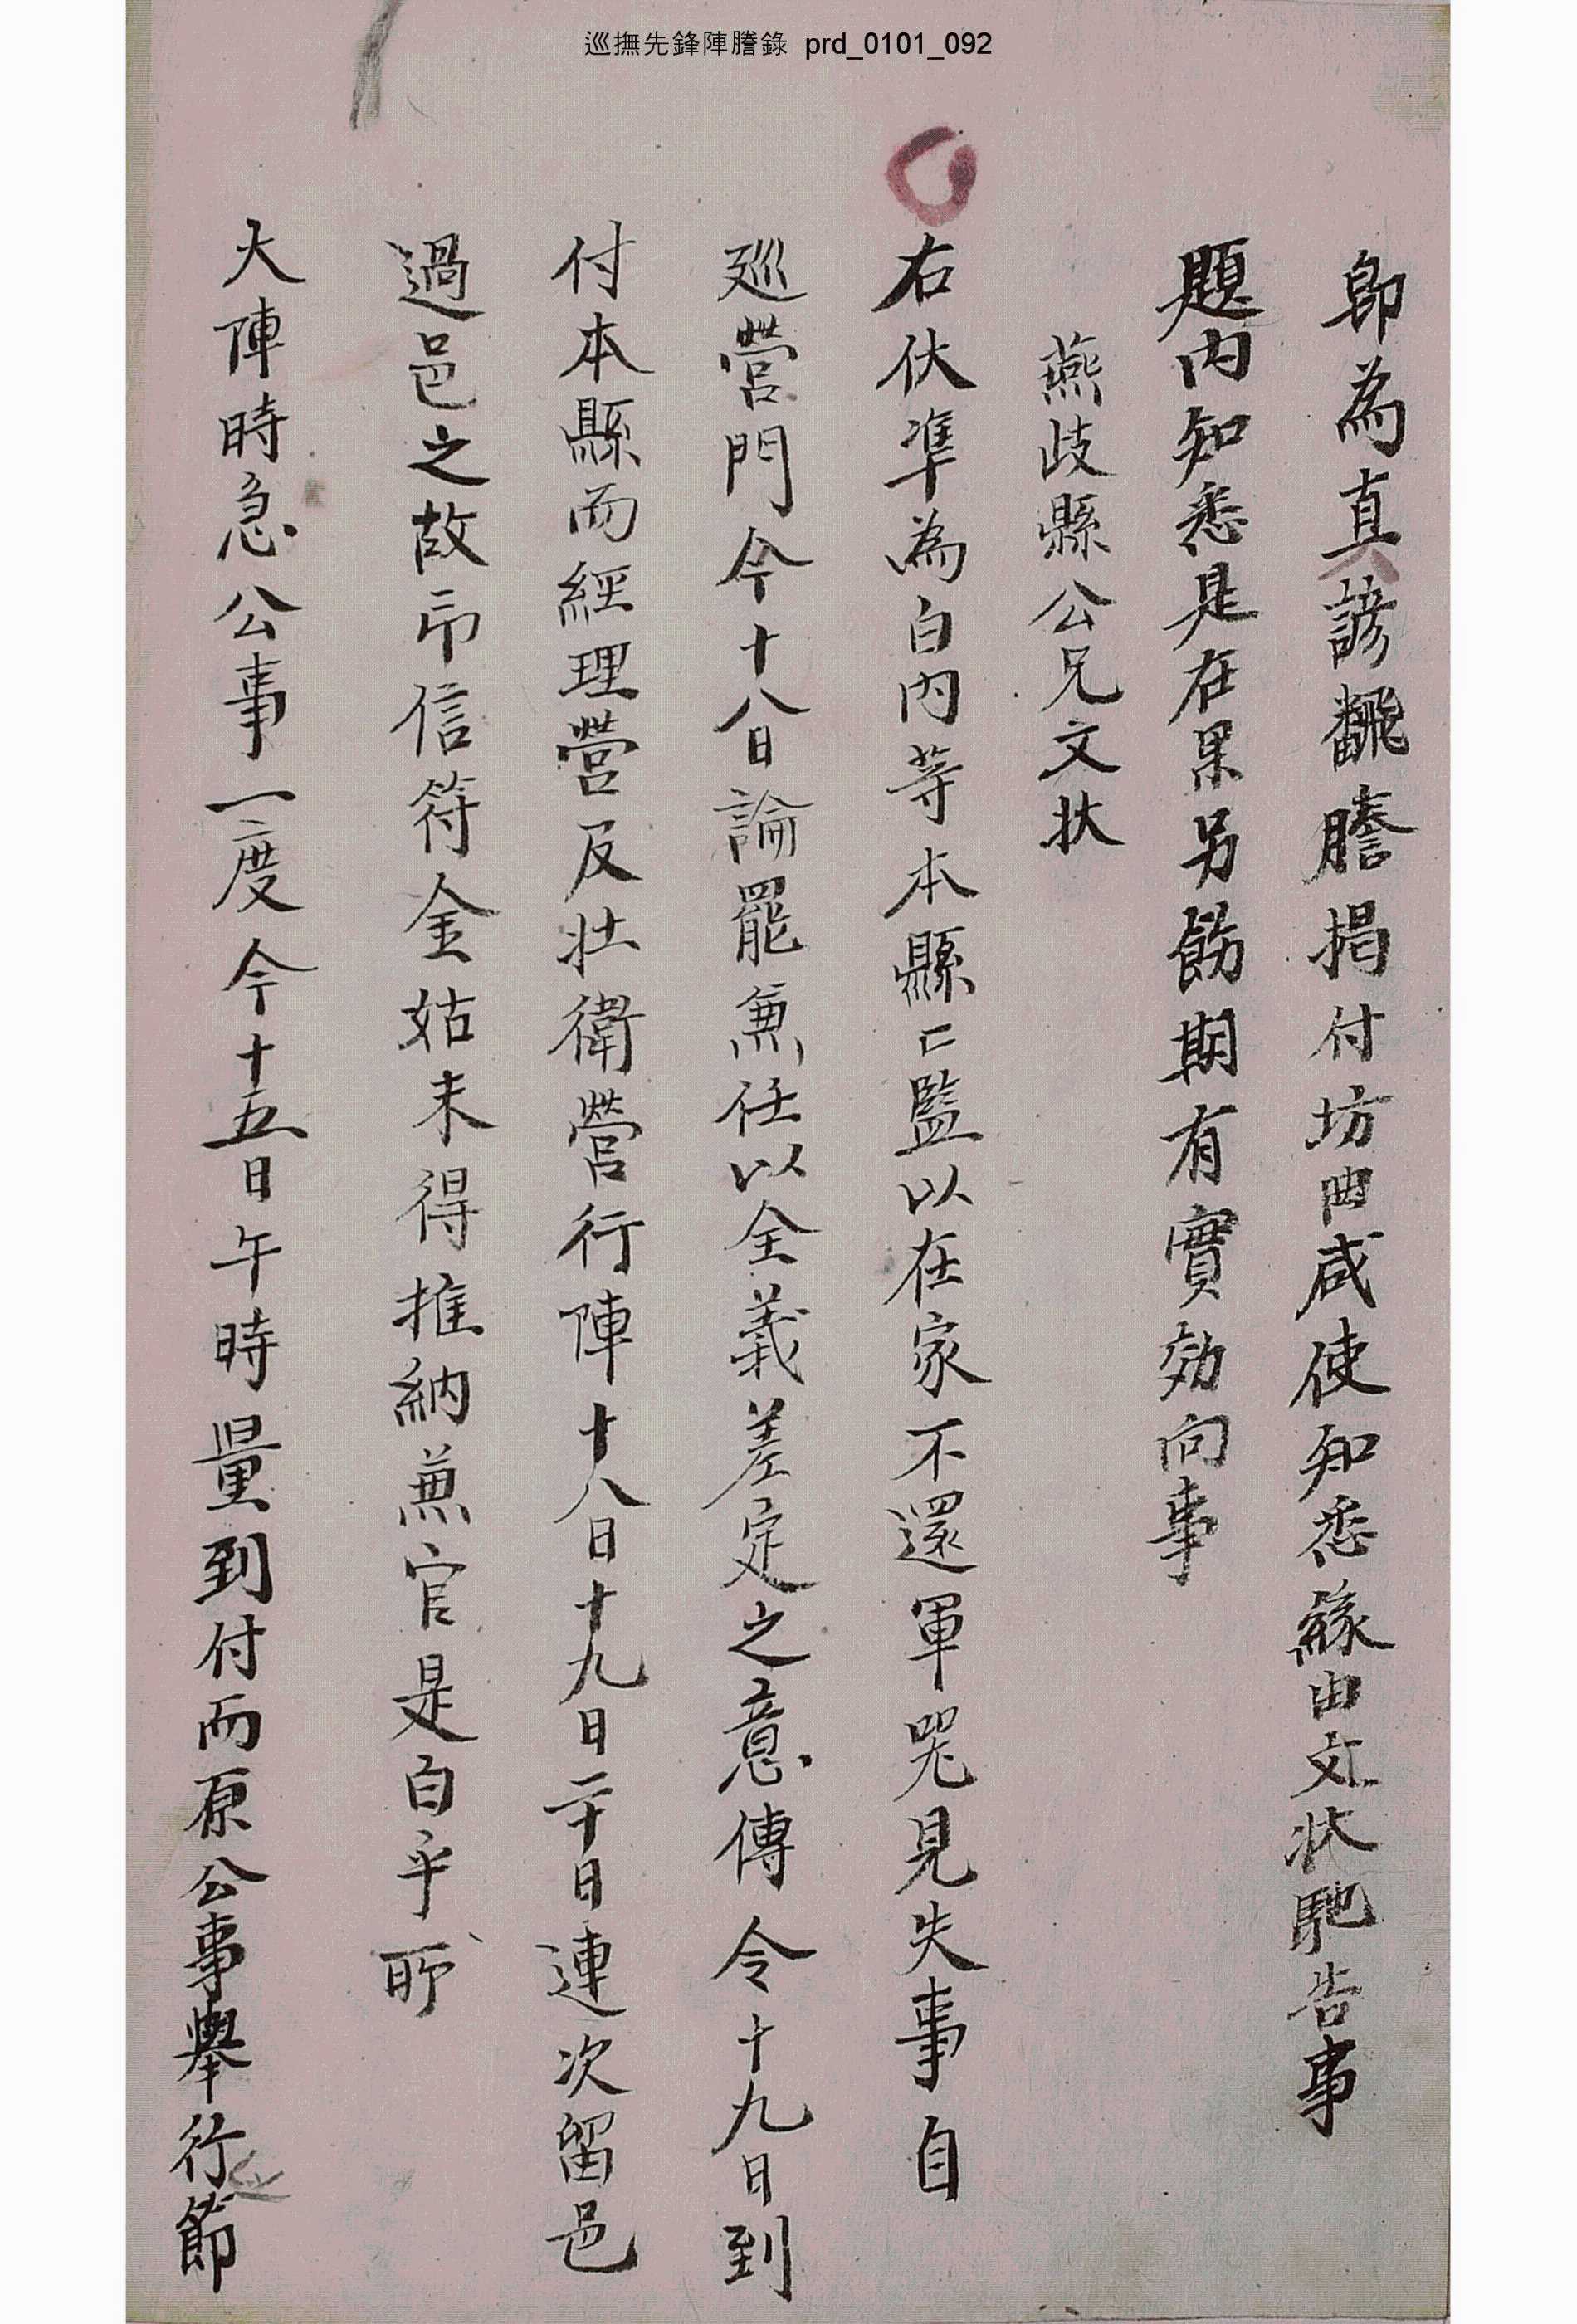 巡撫先鋒陣謄錄 prd_0101_092
卽為真諺飜謄揭付坊曲咸使知悉緣由文狀馳告事
題內知悉是在果另飭期有實効向事
燕歧縣公兄文狀
右伏準為白內等本縣亡監以在家不還軍哭見失事自
巡營門今十八日論罷兼任以全義差定之意傳令十九日到
付本縣而經理營及壯衛營行陣十八日十九日二十日連次留邑
過邑之故印信符金姑未得推納兼官是白乎所
大陣時急公事一度今十五日午時量到付而原公事擧行節